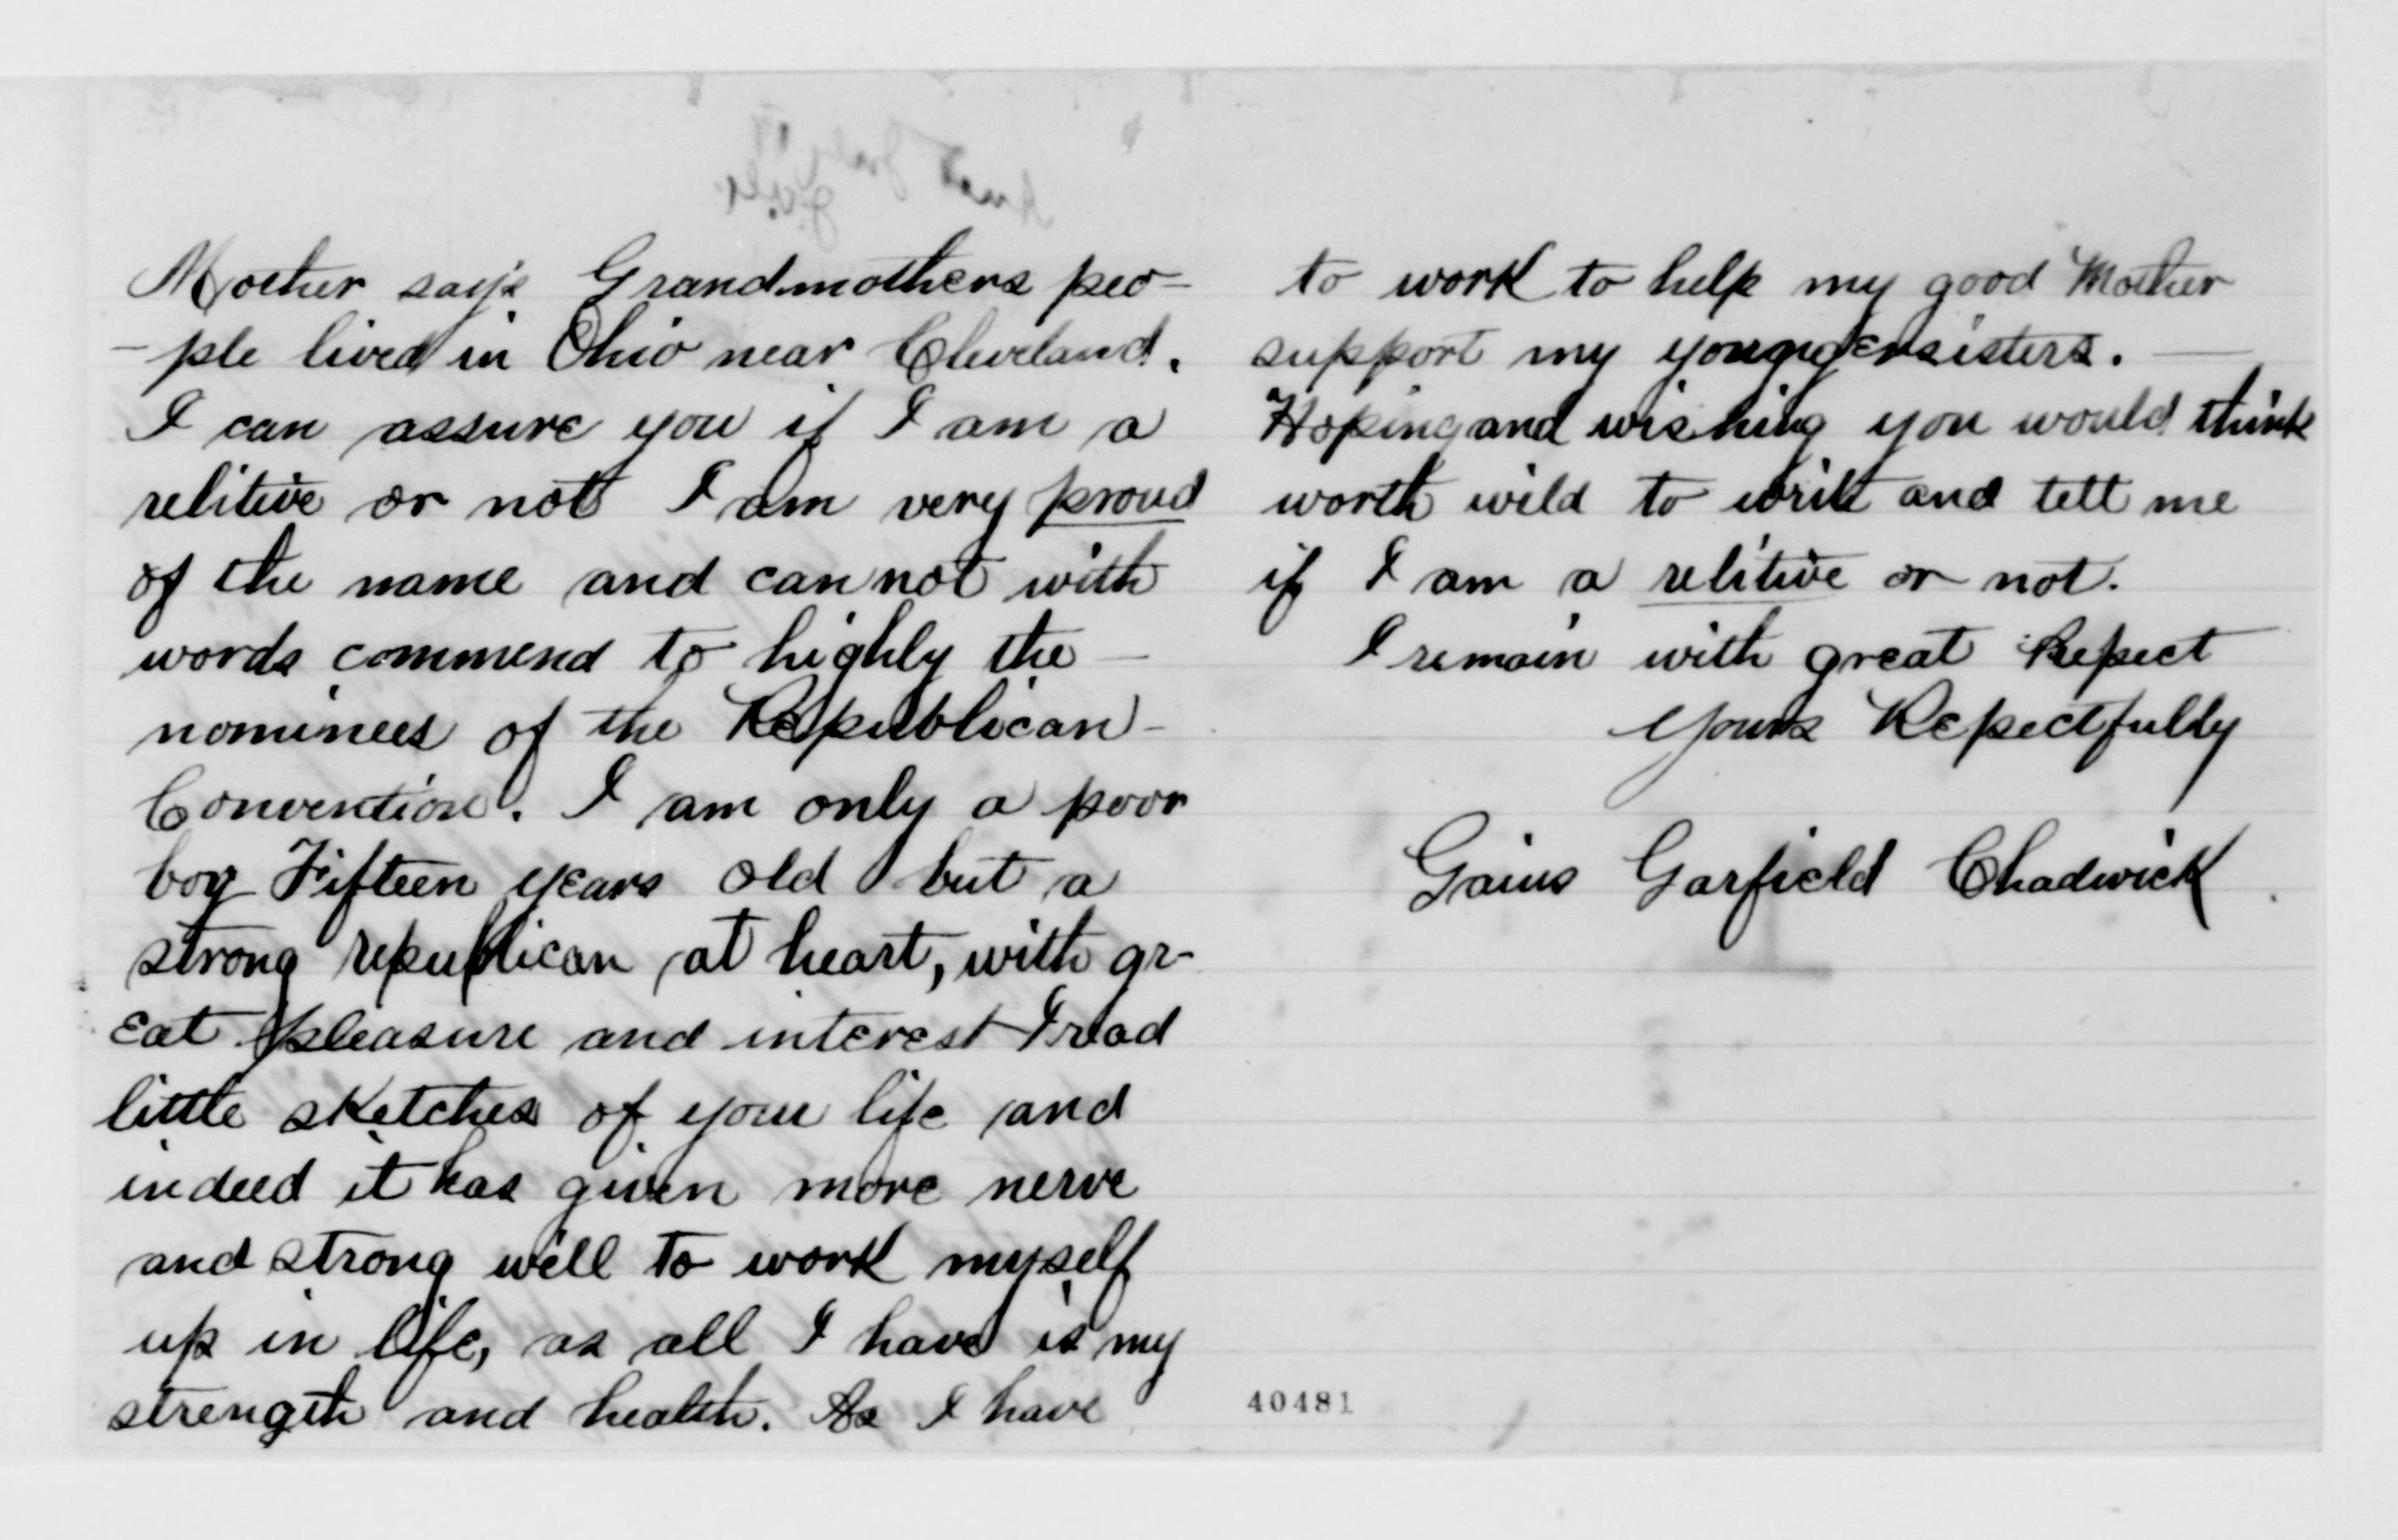 Mother says Grandmothers peo-
-ple lived in Ohio near Cleveland.
I can assure you if I am a
relitive or not I am very proud
of the name and can not with
words commend to highly the —
nominees of the Republican -
Convention. I am only a poor
boy Fifteen years old but a
strong republican at heart, with gr-
eat pleasure and interest I read
little sketches of your life and
indeed it has given more nerve
and strong will to work myself
up in life, as all I have is my
strength and health. As I have
to work to help my good Mother
support my younger sisters. —
Hoping and wishing you would think
worth wild to write and tell me
if I am a relitive or not.
I remain with great Repect
Yours Repectfully
Gaius Garfield Chadwick
40481